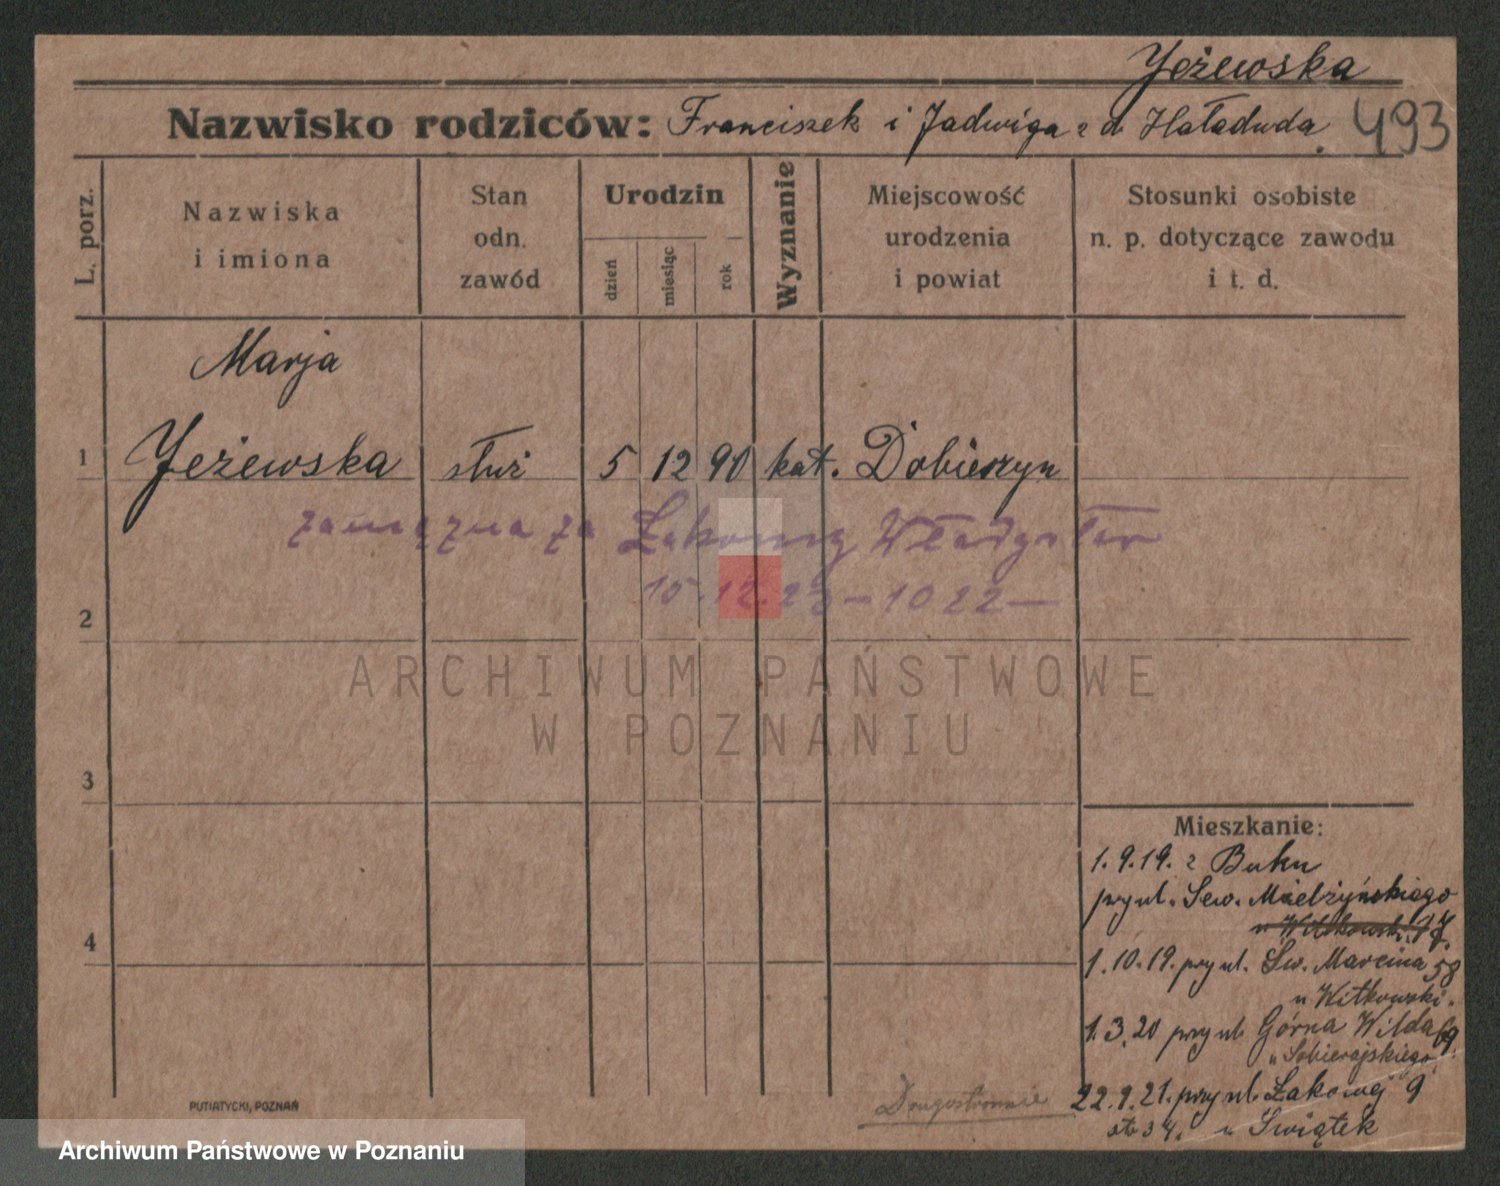 Jeżewska
Nazwisko rodziców: Franciszek i Jadwiga z d Haładuda.
493
L. porz.
Nazwiska
i imiona
Stan
odn.
zawód
Urodzin
dzień
miesiąc
rok
Wyznanie
Miejscowość
urodzenia
i powiat
Stosunki osobiste
n. p. dotyczące zawodu
i t. d.
Marja
1 Jeżewska służ 5 12 90 kat. Dobieszyn
zamężna za Władysław
15.12.23 – 1022 –
2
ARCHIWUM PAŃSTWOWE
W POZNANIU
3
Mieszkanie:
1.9.19. z Buku
przy ul. Sew. Mielżyńskiego
4
1.10.19. przy ul. Św. Marcina 58
u Witkowski.
1.3.20 przy ul. Górna Wilda 69
" Sobierajskiego.
22.9.21. przy ul. Łąkowej 9
u Świątek
Drugostronnie
PUTIATYCKI, POZNAŃ
Archiwum Państwowe w Poznaniu